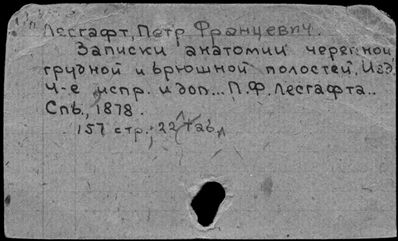 Лесгафт, Петр Францевич.
Записки анатомии черепной,
грудной и брюшной полостей. Изд.
4-е испр. и доп... П.Ф. Лесгафта..
Спб., 1878.
157 стр.; 22 таб.